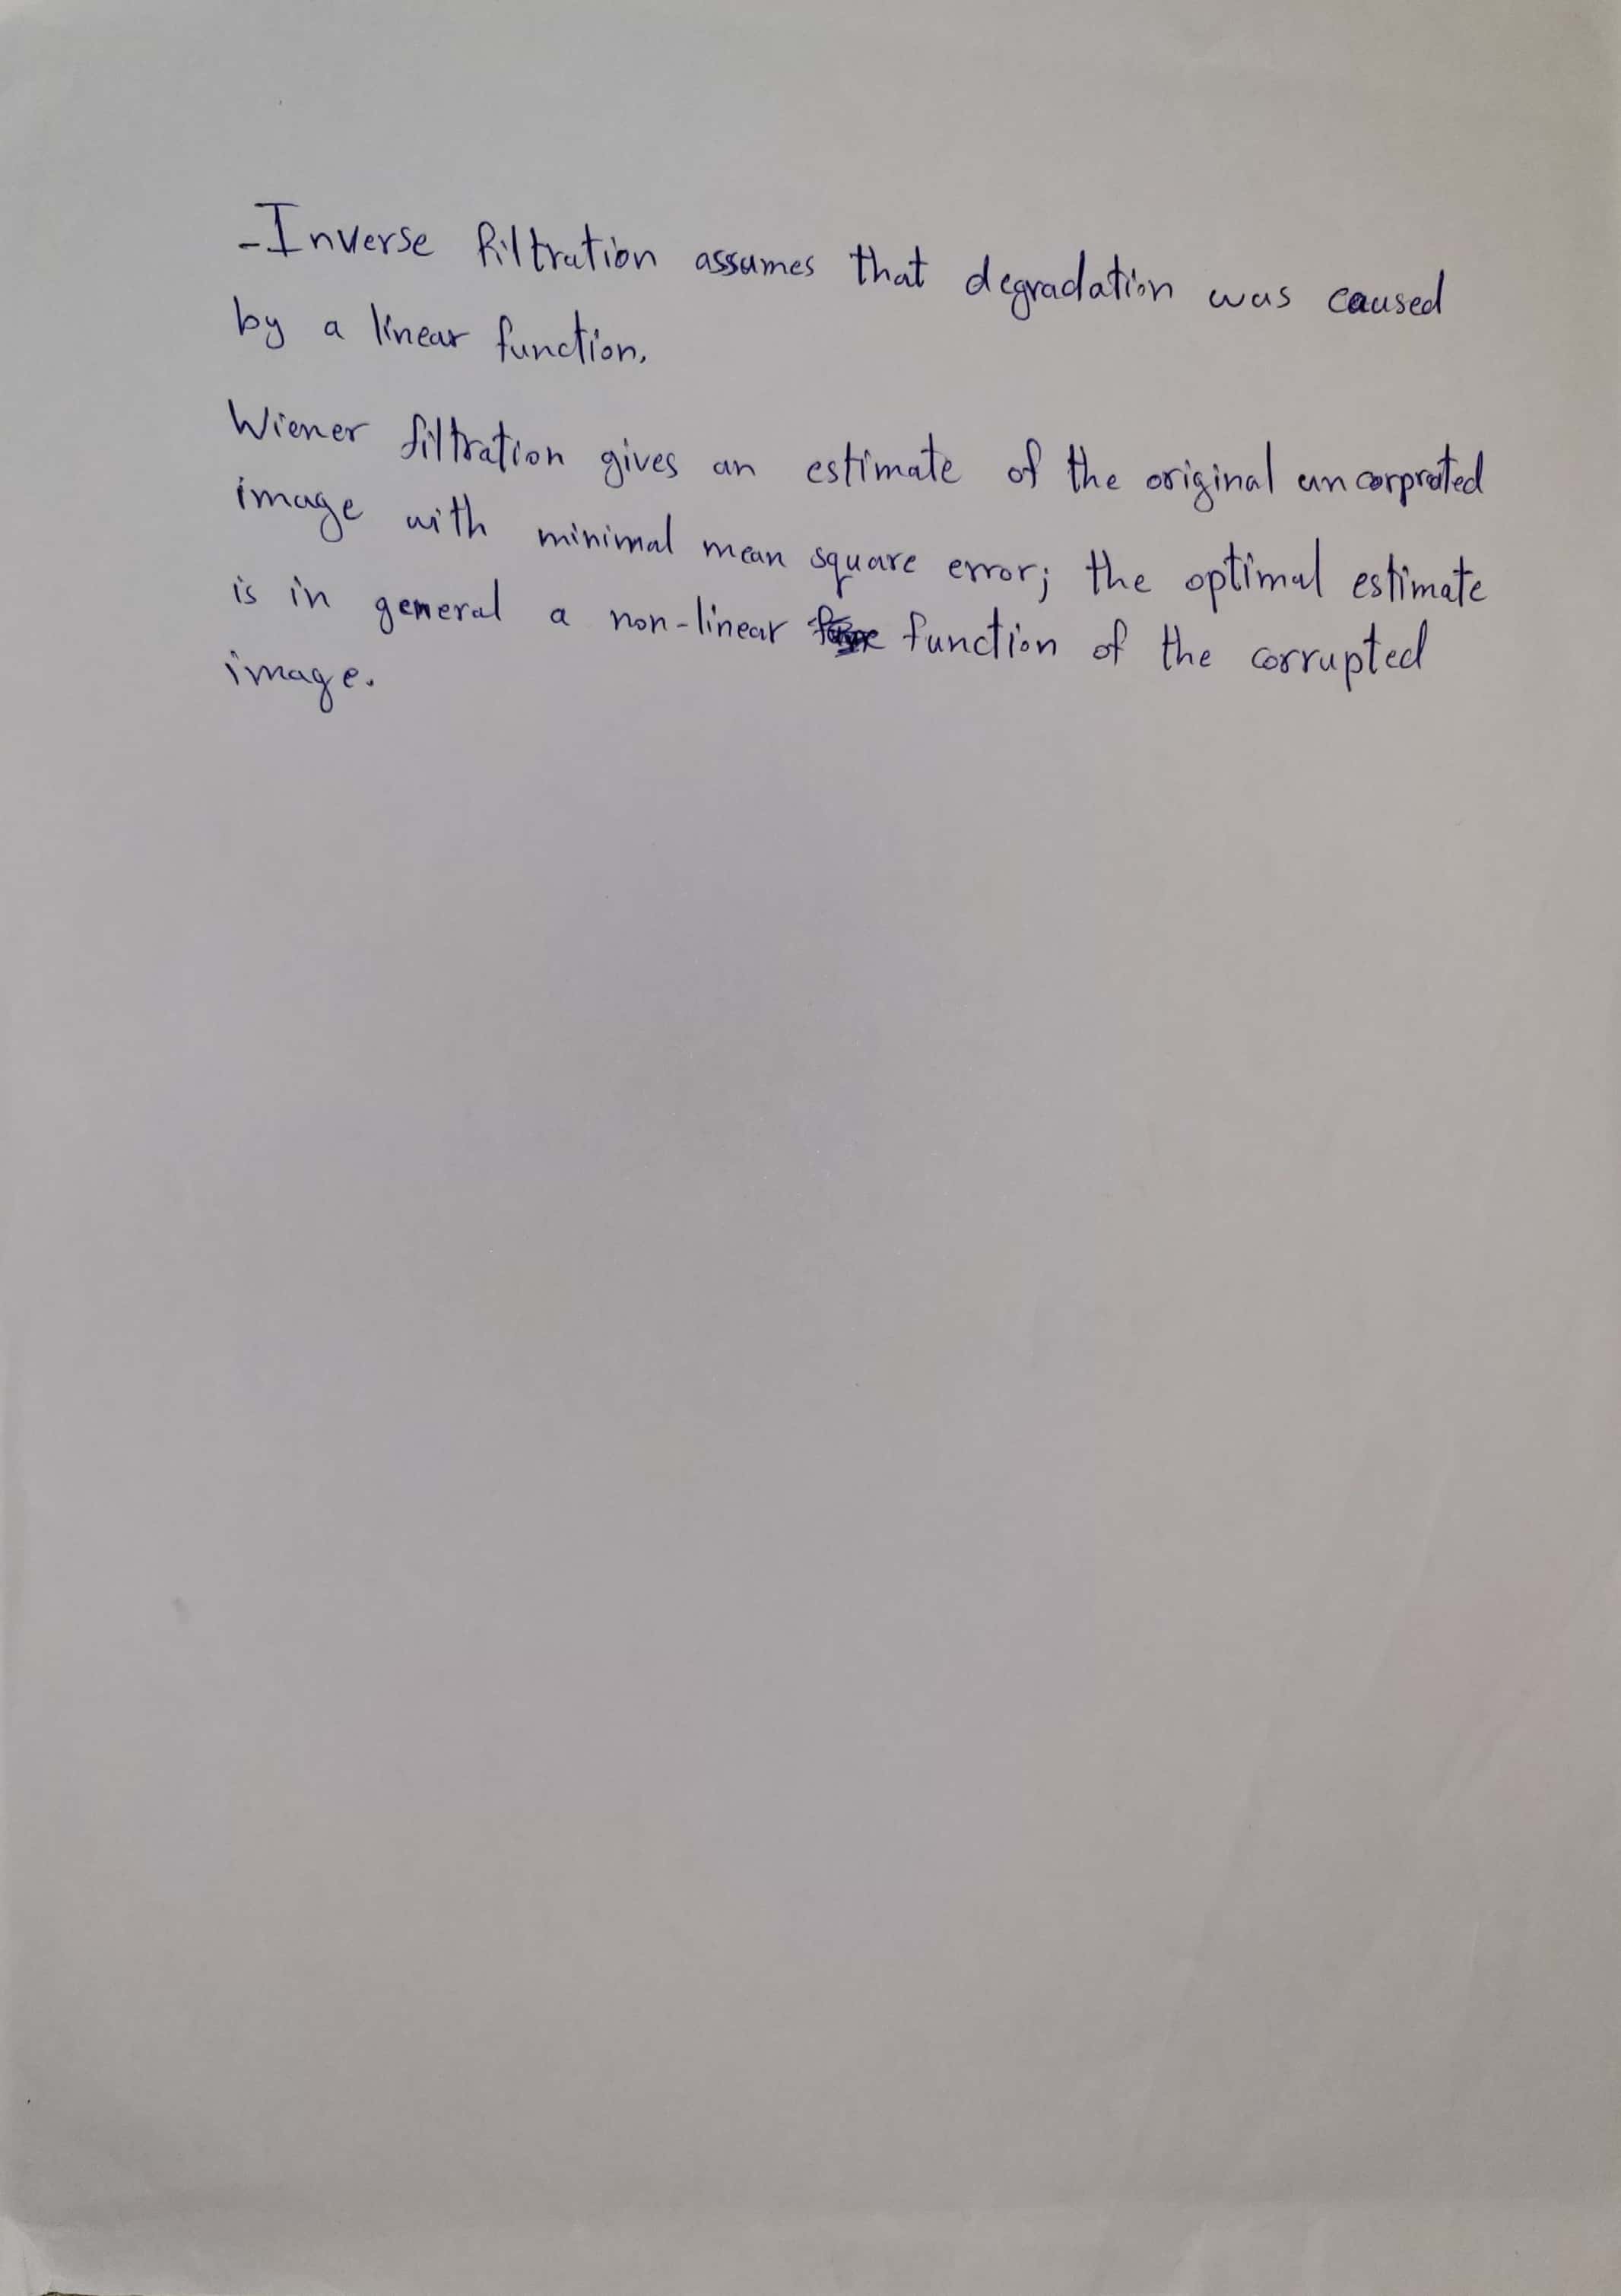 -Inverse filtration assumes that degradation was caused
by a linear function.
Wiener filtration gives an estimate of the original uncorprated
image with minimal mean square error; the optimal estimate
is in general a non-linear function of the corrupted
image.